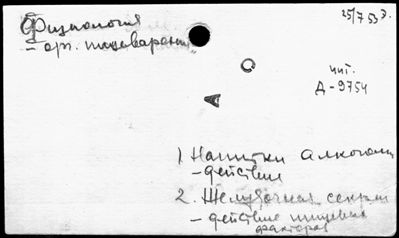 Физиология
– орг. пищеварения
25/7 53 г.
чит.
Д-9754
1) Напитки алкогольн
– действие
2. Желудочная секрец
– действие пищевых
факторов